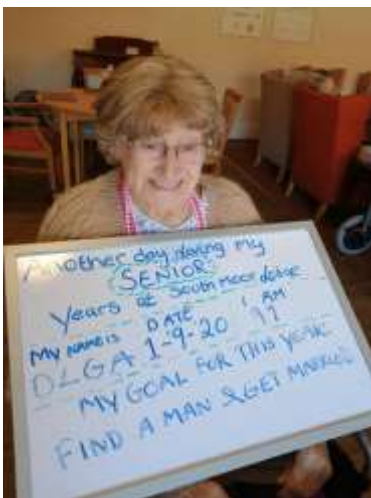 Another day doing my
SENIOR
years at South Moor
MY NAME IS DATE I AM
OLGA 1-9-20
MY GOAL FOR THIS YEAR:
FIND A MAN & GET MARRIED